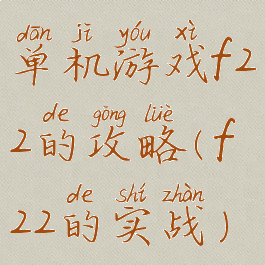 dān jī yóu xì
单机游戏f2
de gōng lüè
2的攻略(f
de shí zhàn
22的实战)